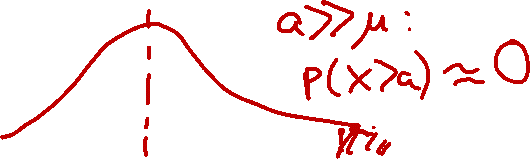 a≫μ:
p(X>a)≈0